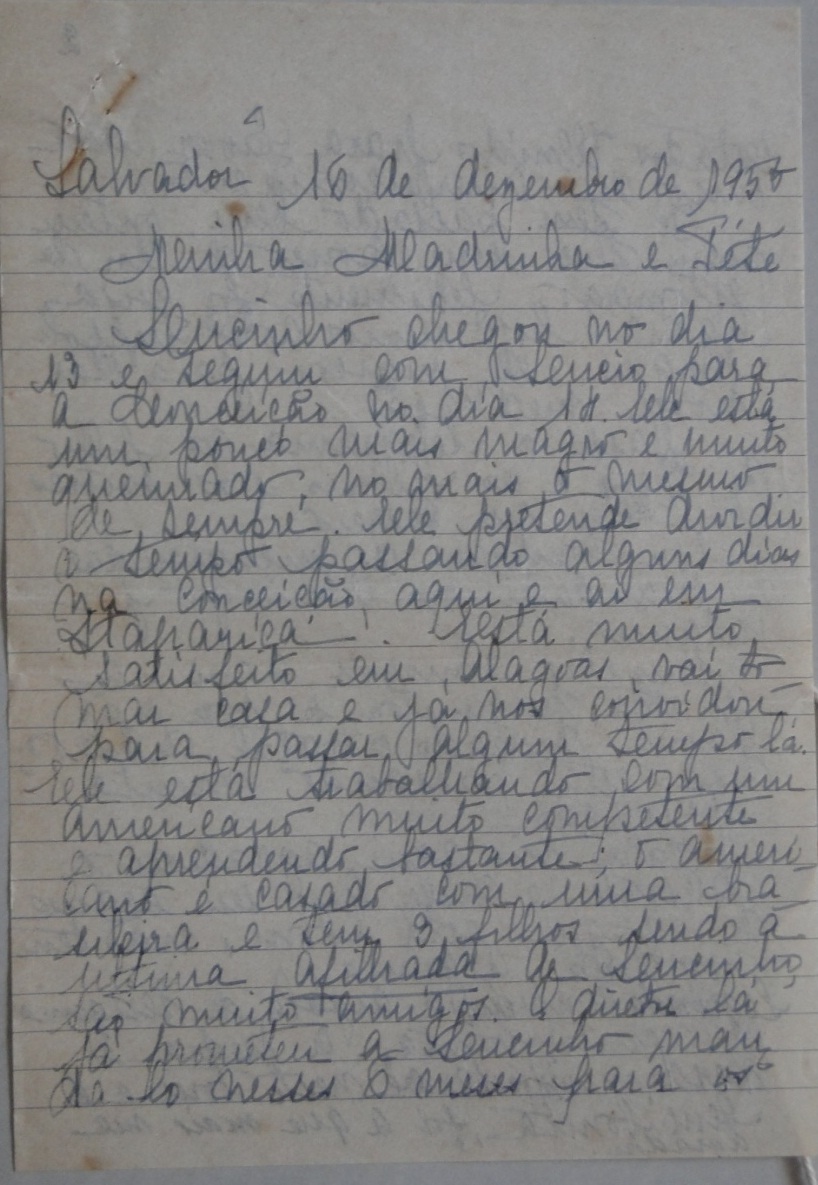 Salvador 16 de dezembro de 195
Minha Madrinha e Tété
chegou no dia
13 e seguiu com para
a Conceição no dia 14. Ele está
um pouco mais magro e muito
queimado, no mais o mesmo
de sempre. Ele pretende dividir
o tempo passando alguns dias
na Conceição, aqui e aí em
Itaparica. Está muito
satisfeito em Alagoas, vai to
mar casa e já nos convidou
para passar algum tempo lá.
Ele está trabalhando com um
americano muito competente
e aprendendo bastante; o ameri
cano é casado com uma bra
sileira e tem 3 filhos sendo a
última afilhada de
são muito amigos. O lá
já prometeu a man
da lo nesses 6 meses para os